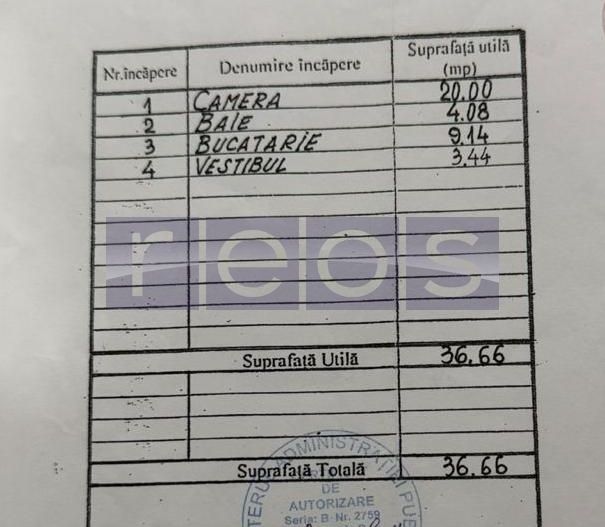 Nr.încăpere Denumire încăpere Suprafață utilă (mp)
1 CAMERA 20.00
2 BAIE 4.08
3 BUCATARIE 9.14
4 VESTIBUL 3.44
reos
Suprafață Utilă 36.66
Suprafață Totală 36.66
ADMINISTRAȚIEI
DE
AUTORIZARE
Seria: B Nr. 2759